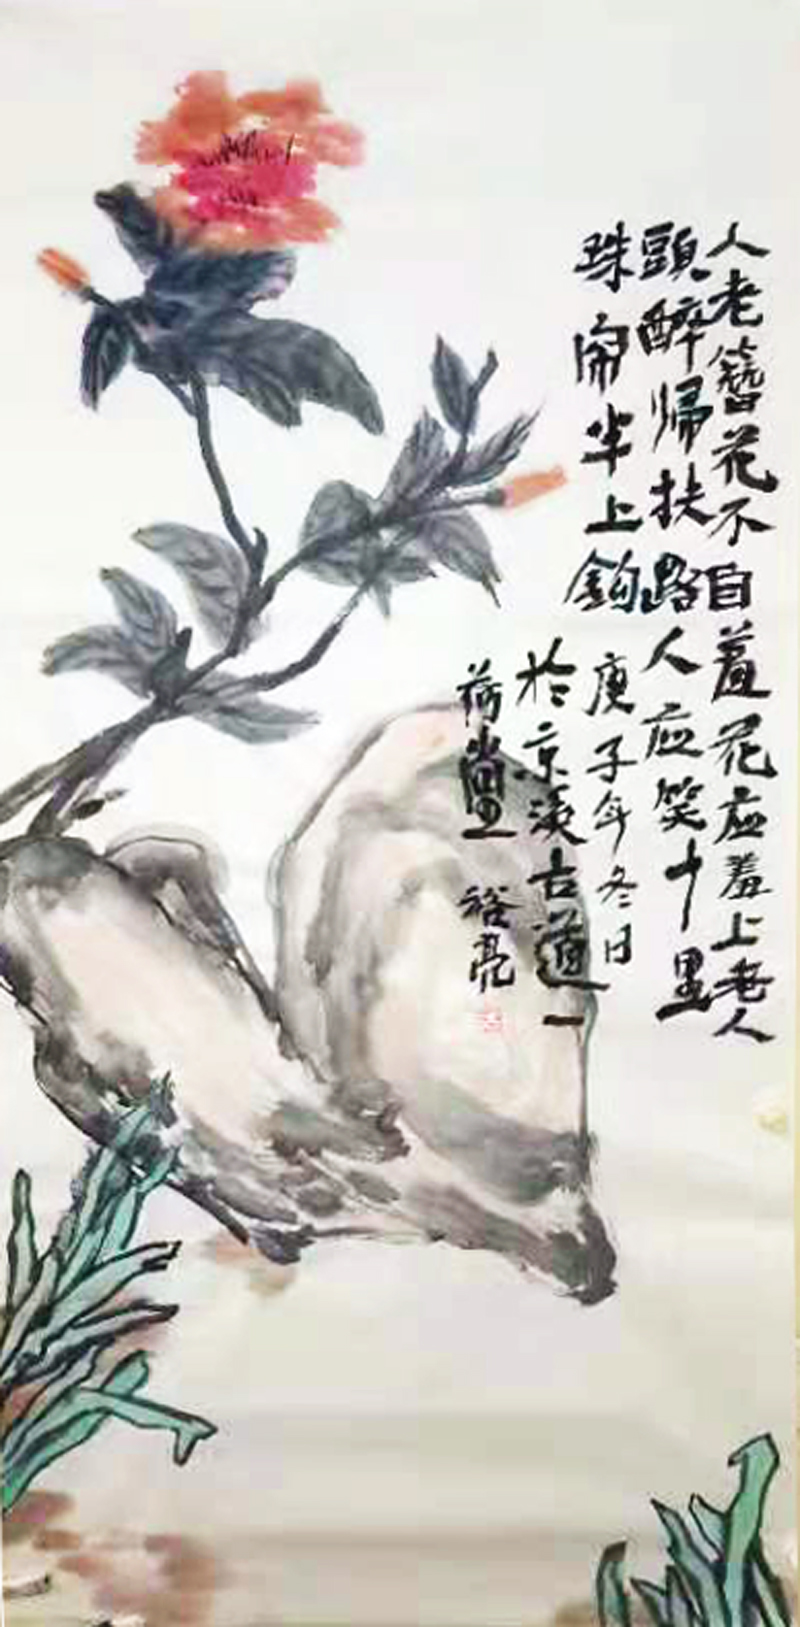 人老簪花不自羞花应羞上老人
頭醉帰扶路人应笑十里
珠帘半上鈎
庚子年冬日
於京古道一
荷裕亮